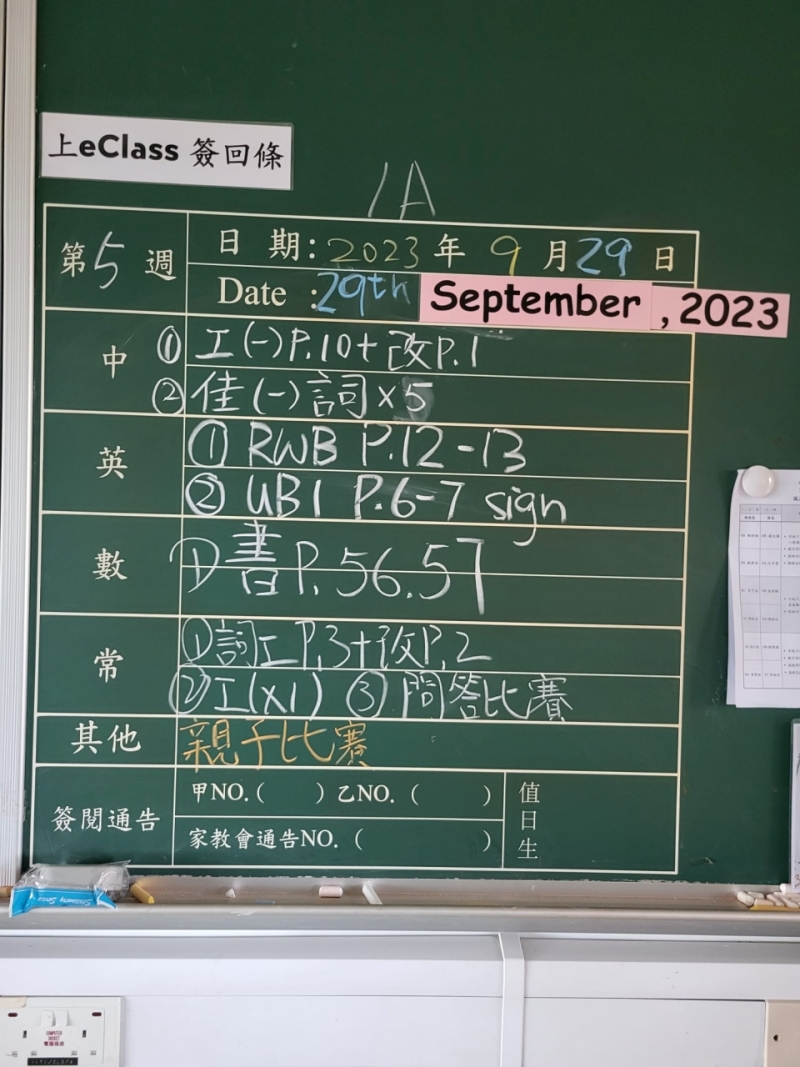 上eClass 簽回條
1A
第5週
日 期：2023年 9月29日
Date :29th September , 2023
中
①工(一)P.10+改P.1
②佳(一)詞×5
英
①RWB P.12-13
②UB1 P.6-7 sign
數
①書P.56.57
常
①詞工P.3+改P.2
②工(×1) ③問答比賽
其他
親子比賽
簽閱通告
甲NO.( ) 乙NO. ( )
家教會通告NO. ( )
值日生
COMPUTER
SOCKET